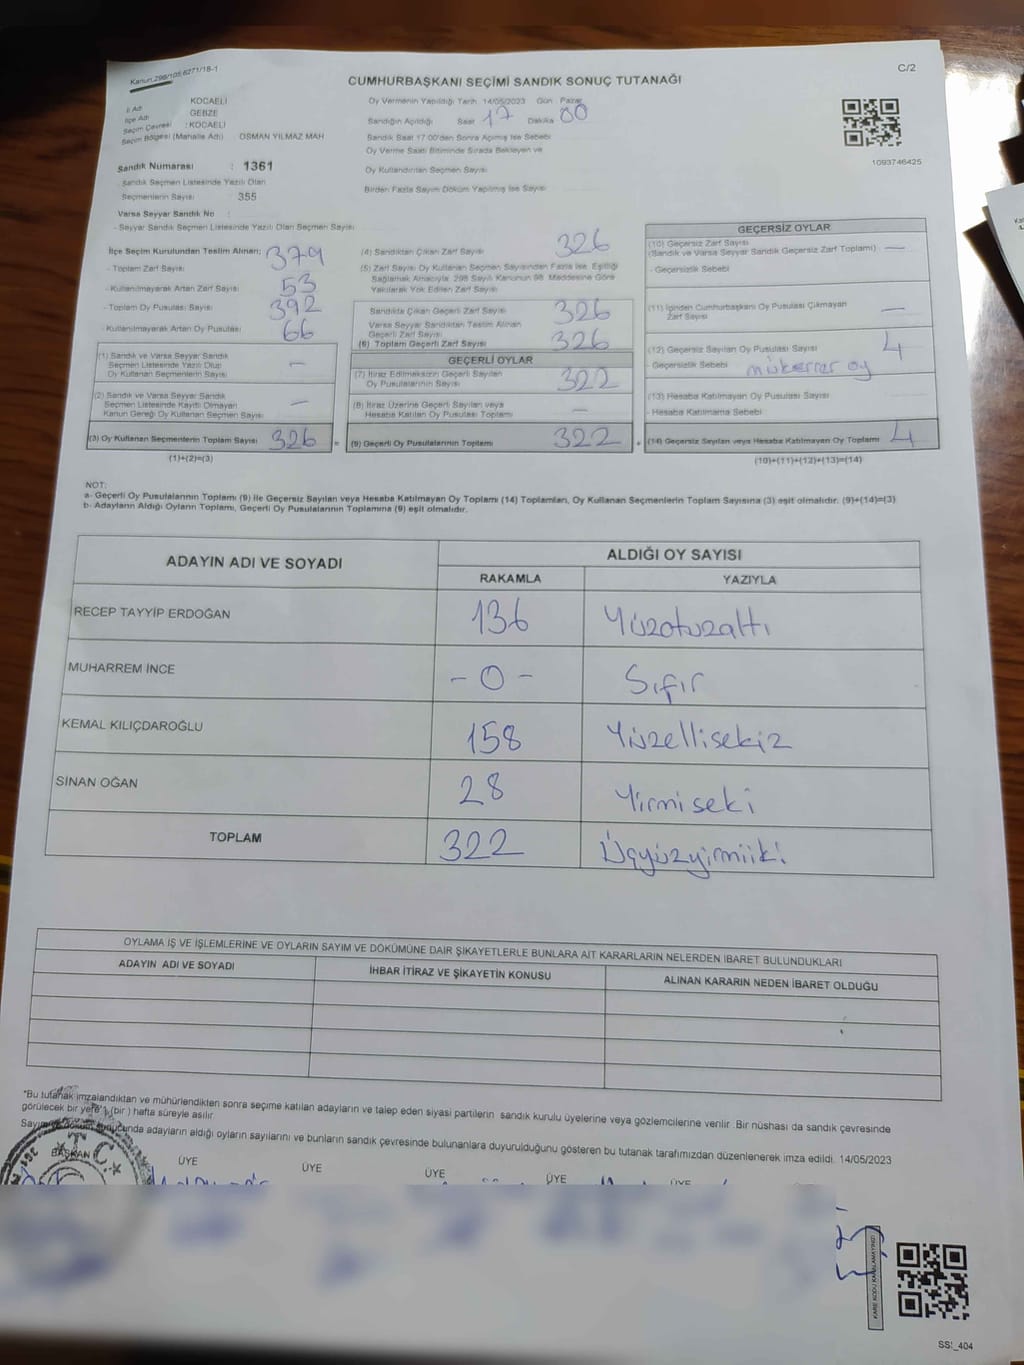 Kanun 298/105,6271/18-1
CUMHURBAŞKANI SEÇİMİ SANDIK SONUÇ TUTANAĞI
C/2
İl Adı KOCAELİ
İlçe Adı GEBZE
Seçim Çevresi : KOCAELİ
Seçim Bölgesi (Mahalle Adı) : OSMAN YILMAZ MAH
Sandık Numarası : 1361
- Sandık Seçmen Listesinde Yazılı Olan
Seçmenlerin Sayısı 355
Varsa Seyyar Sandık No :
- Seyyar Sandık Seçmen Listesinde Yazılı Olan Seçmen Sayısı
Oy Vermenin Yapıldığı Tarih 14/05/2023 Gün : Pazar
Sandığın Açıldığı Saat 17 Dakika 00
Sandık Saat 17.00'den Sonra Açılmış İse Sebebi
Oy Verme Saati Bitiminde Sırada Bekleyen ve
Oy Kullandırılan Seçmen Sayısı
Birden Fazla Sayım Döküm Yapılmış İse Sayısı
1093746425
İlçe Seçim Kurulundan Teslim Alınan;
- Toplam Zarf Sayısı 379
- Kullanılmayarak Artan Zarf Sayısı 53
- Toplam Oy Pusulası Sayısı 392
- Kullanılmayarak Artan Oy Pusulası 66
(1) Sandık ve Varsa Seyyar Sandık
Seçmen Listesinde Yazılı Olup
Oy Kullanan Seçmenlerin Sayısı –
(2) Sandık ve Varsa Seyyar Sandık
Seçmen Listesinde Kayıtlı Olmayan
Kanun Gereği Oy Kullanan Seçmen Sayısı –
(3) Oy Kullanan Seçmenlerin Toplam Sayısı 326 =
(1)+(2)=(3)
(4) Sandıktan Çıkan Zarf Sayısı 326
(5) Zarf Sayısı Oy Kullanan Seçmen Sayısından Fazla İse, Eşitliği
Sağlamak Amacıyla, 298 Sayılı Kanunun 98. Maddesine Göre
Yakılarak Yok Edilen Zarf Sayısı
Sandıkta Çıkan Geçerli Zarf Sayısı 326
Varsa Seyyar Sandıktan Teslim Alınan
Geçerli Zarf Sayısı
(6) Toplam Geçerli Zarf Sayısı 326
GEÇERLİ OYLAR
(7) İtiraz Edilmeksizin Geçerli Sayılan
Oy Pusulalarının Sayısı 322
(8) İtiraz Üzerine Geçerli Sayılan veya
Hesaba Katılan Oy Pusulası Toplamı –
(9) Geçerli Oy Pusulalarının Toplamı 322 +
GEÇERSİZ OYLAR
(10) Geçersiz Zarf Sayısı
(Sandık ve Varsa Seyyar Sandık Geçersiz Zarf Toplamı) –
- Geçersizlik Sebebi
(11) İçinden Cumhurbaşkanı Oy Pusulası Çıkmayan
Zarf Sayısı –
(12) Geçersiz Sayılan Oy Pusulası Sayısı 4
- Geçersizlik Sebebi mükerrer oy
(13) Hesaba Katılmayan Oy Pusulası Sayısı
- Hesaba Katılmama Sebebi
(14) Geçersiz Sayılan veya Hesaba Katılmayan Oy Toplamı 4
(10)+(11)+(12)+(13)=(14)
NOT:
a- Geçerli Oy Pusulalarının Toplamı (9) ile Geçersiz Sayılan veya Hesaba Katılmayan Oy Toplamı (14) Toplamları, Oy Kullanan Seçmenlerin Toplam Sayısına (3) eşit olmalıdır. (9)+(14)=(3)
b- Adayların Aldığı Oyların Toplamı, Geçerli Oy Pusulalarının Toplamına (9) eşit olmalıdır.
ADAYIN ADI VE SOYADI ALDIĞI OY SAYISI
RAKAMLA YAZIYLA
RECEP TAYYİP ERDOĞAN 136 Yüzotuzaltı
MUHARREM İNCE - 0 - Sıfır
KEMAL KILIÇDAROĞLU 158 Yüzellisekiz
SİNAN OĞAN 28 Yirmiseki
TOPLAM 322 Üçyüzyirmiiki
OYLAMA İŞ VE İŞLEMLERİNE VE OYLARIN SAYIM VE DÖKÜMÜNE DAİR ŞİKAYETLERLE BUNLARA AİT KARARLARIN NELERDEN İBARET BULUNDUKLARI
ADAYIN ADI VE SOYADI İHBAR İTİRAZ VE ŞİKAYETİN KONUSU ALINAN KARARIN NEDEN İBARET OLDUĞU
*Bu tutanak imzalandıktan ve mühürlendikten sonra seçime katılan adayların ve talep eden siyasi partilerin sandık kurulu üyelerine veya gözlemcilerine verilir. Bir nüshası da sandık çevresinde
görülecek bir yere 1 (bir) hafta süreyle asılır.
adayların aldığı oyların sayılarını ve bunların sandık çevresinde bulunanlara duyurulduğunu gösteren bu tutanak tarafımızdan düzenlenerek imza edildi. 14/05/2023
BAŞKAN ÜYE ÜYE ÜYE ÜYE ÜYE
T.C.
KARE KODU KARALAMAYINIZ!
SSİ_404